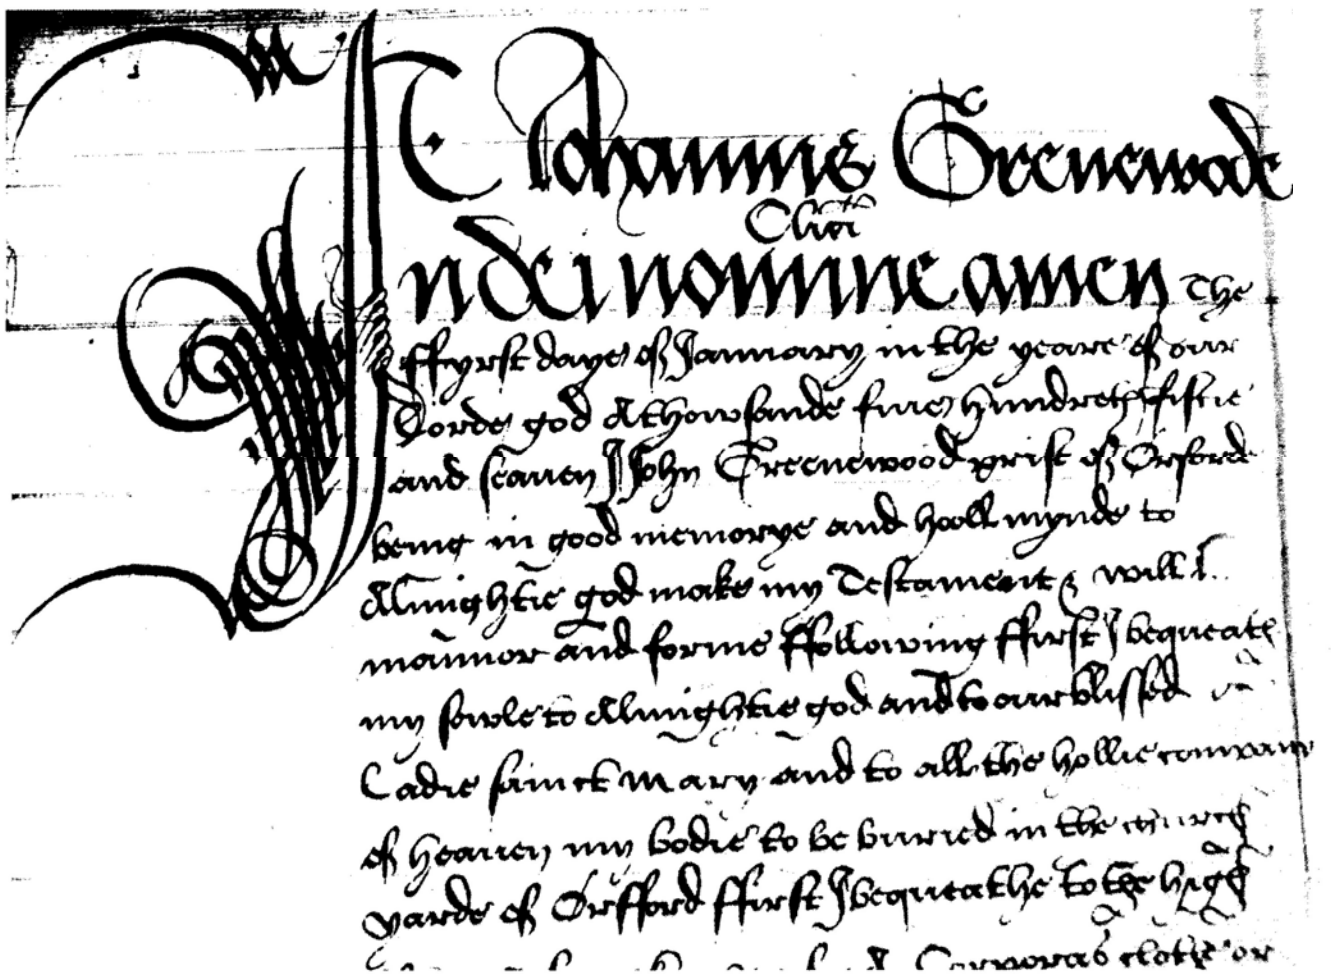 T Iohannis Greenewode
Clici
In dei nomine amen The
ffyrst daye of January in the yeare of our
Lorde god A thowsande five hundreth fiftie
and seaven I John Greenewood prist of Orforde
being in good memorye and hooll mynde to
Almightie god make my Testament & will i
mannor and forme ffollowing ffirst I bequeath
my sowle to Almightie god and to our blissed
Ladie sainct Mary and to all the hollie company
of heaven my bodie to be buried in the church
yarde of Orfford ffirst I bequeathe to the high
Corporas clothe or